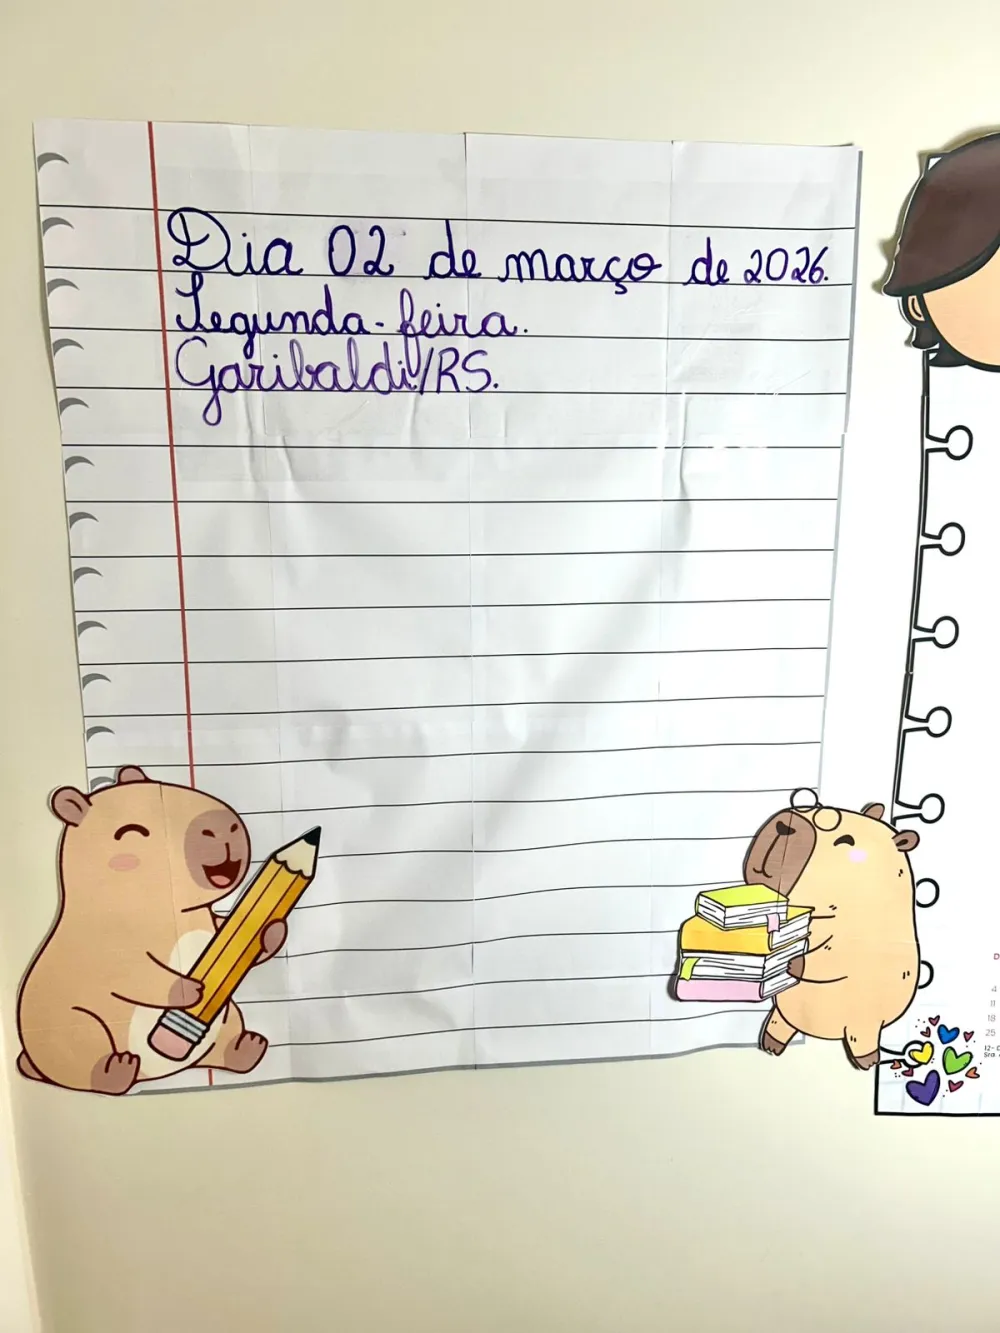 Dia 02 de março de 2026.
Segunda-feira.
Garibaldi/RS.
D
4
11
18
25
12-